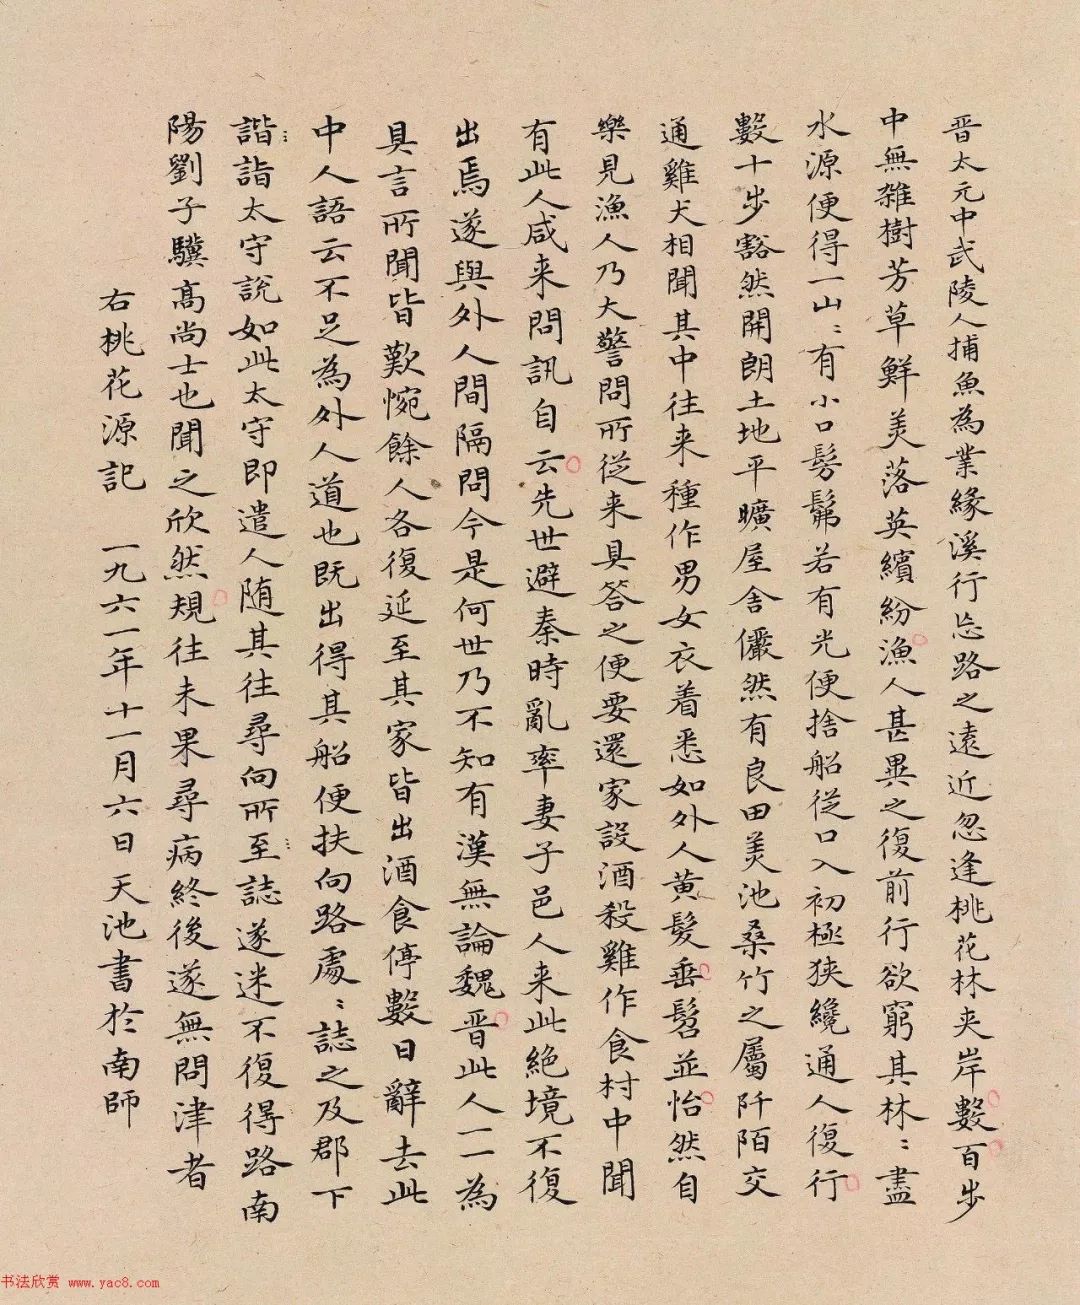 晋太元中武陵人捕魚為業緣溪行忘路之遠近忽逢桃花林夾岸數百步
中無雜樹芳草鮮美落英繽紛漁人甚異之復前行欲窮其林〻盡
水源便得一山〻有小口髣髴若有光便捨船從口入初極狹纔通人復行
數十步豁然開朗土地平曠屋舍儼然有良田美池桑竹之屬阡陌交
通雞犬相聞其中往来種作男女衣着悉如外人黄髮垂髫並怡然自
樂見漁人乃大警問所從来具答之便要還家設酒殺雞作食村中聞
有此人咸来問訊自云先世避秦時亂率妻子邑人来此絕境不復
出焉遂與外人間隔問今是何世乃不知有漢無論魏晋此人一一為
具言所聞皆歎惋餘人各復延至其家皆出酒食停數日辭去此
中人語云不足為外人道也既出得其船便扶向路處〻誌之及郡下
諧詣太守說如此太守即遣人随其往尋向所至誌遂迷不復得路南
陽劉子驥高尚士也聞之欣然規往未果尋病終後遂無問津者
右桃花源記 一九六一年十一月六日天池書於南師
书法欣赏 www.yac8.com